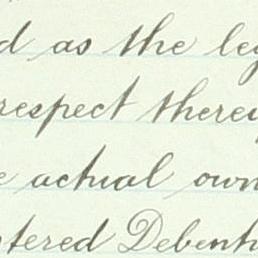 d as the leg
respect there
e actual own
stered Debent